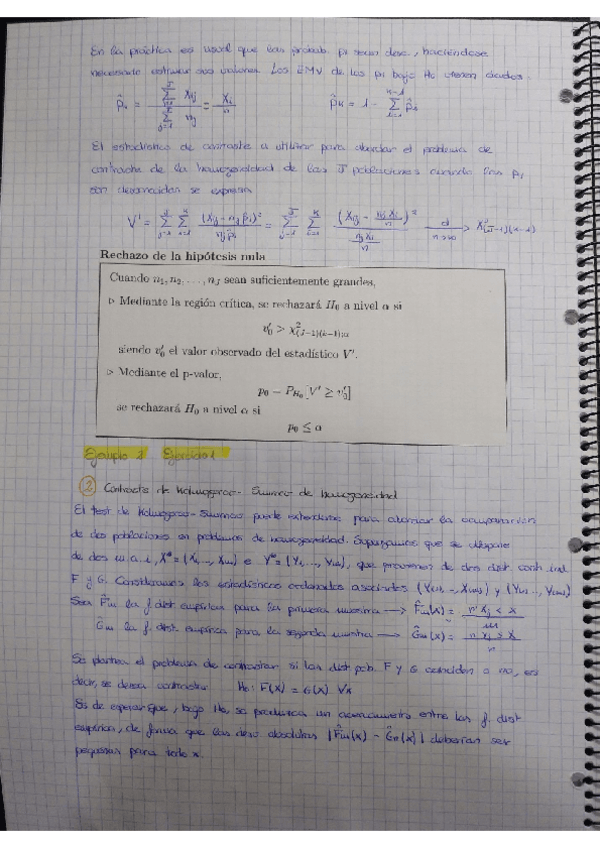 En la práctica es usual que las probab. pi sean desc., haciéndose
necesario estimar sus valores. Los EMV de los pi bajo H₀ vienen dados.
p̂ᵢ = Σⱼ₌₁ᴶ Xᵢⱼ / Σⱼ₌₁ᴶ nⱼ = Xᵢ / n p̂ₖ = 1 - Σᵢ₌₁ᵏ⁻¹ p̂ᵢ
El estadístico de contraste a utilizar para abordar el problema de
contraste de la homogeneidad de las J poblaciones cuando las pᵢ
son desconocidas se expresa
V' = Σⱼ₌₁ᴶ Σᵢ₌₁ᵏ (Xᵢⱼ - nⱼ p̂ᵢ)² / nⱼ p̂ᵢ = Σⱼ₌₁ᴶ Σᵢ₌₁ᵏ (Xᵢⱼ - nⱼXᵢ/n)² / (nⱼXᵢ/n) d→ n→∞ χ²(J-1)(k-1)
Rechazo de la hipótesis nula
Cuando n₁, n₂, . . . , nJ sean suficientemente grandes,
▷ Mediante la región crítica, se rechazará H₀ a nivel α si
v'₀ > χ²(J−1)(k−1);α
siendo v'₀ el valor observado del estadístico V'.
▷ Mediante el p-valor,
p₀ = P_H₀[V' ≥ v'₀]
se rechazará H₀ a nivel α si
p₀ ≤ α
Ejemplo 2 Ejercicio 1
② Contraste de Kolmogorov-Smirnov de homogeneidad
El test de Kolmogorov-Smirnov puede extenderse para abordar la comparación
de dos poblaciones en problemas de homogeneidad. Supongamos que se dispone
de dos m.a.s, X = (X₁, ..., Xm) e Y = (Y₁, ..., Yn), que provienen de dos dist. cont. ind.
F y G. Consideramos los estadísticos ordenados asociados
Sea F̂m la f. dist. empírica para la primera muestra → F̂m(x) = nº Xⱼ ≤ x / m
Ĝn la f. dist. empírica para la segunda muestra → Ĝn(x) = nº Yⱼ ≤ x / n
Se plantea el problema de contrastar si las dist. prob. F y G coinciden o no, es
decir, se desea contrastar H₀: F(x) = G(x) ∀x
Es de esperar que, bajo H₀, se produzca un acercamiento entre las f. dist
empírica, de forma que las desv absolutas |F̂m(x) - Ĝn(x)| deberían ser
pequeñas para todo x.